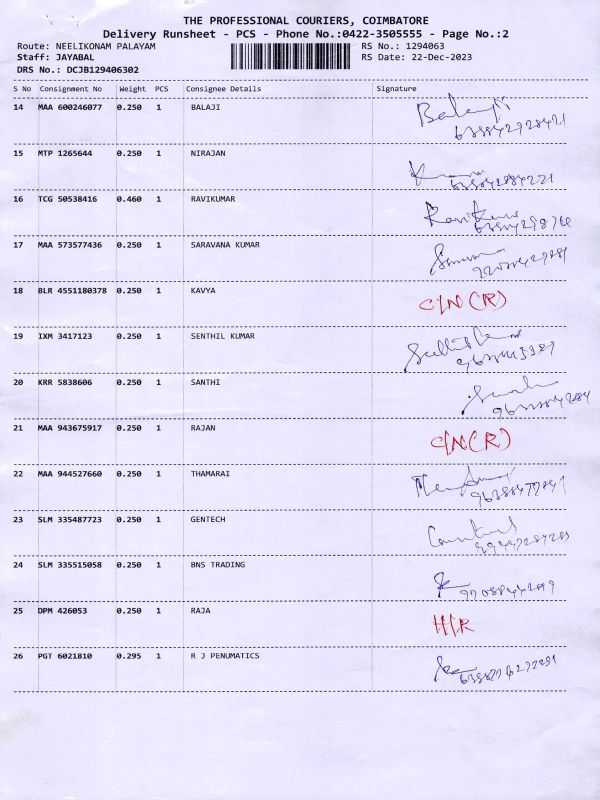 THE PROFESSIONAL COURIERS, COIMBATORE
Delivery Runsheet - PCS - Phone No.:0422-3505555 - Page No.:2
Route: NEELIKONAM PALAYAM RS No.: 1294063
Staff: JAYABAL RS Date: 22-Dec-2023
DRS No.: DCJB129406302
S No Consignment No Weight PCS Consignee Details Signature
14 MAA 600246077 0.250 1 BALAJI Balaji
15 MTP 1265644 0.250 1 NIRAJAN
16 TCG 50538416 0.460 1 RAVIKUMAR Ravikumar
17 MAA 573577436 0.250 1 SARAVANA KUMAR
18 BLR 4551180378 0.250 1 KAVYA C/N (R)
19 IXM 3417123 0.250 1 SENTHIL KUMAR
20 KRR 5838606 0.250 1 SANTHI
21 MAA 943675917 0.250 1 RAJAN C/N (R)
22 MAA 944527660 0.250 1 THAMARAI
23 SLM 335487723 0.250 1 GENTECH
24 SLM 335515058 0.250 1 BNS TRADING
25 DPM 426053 0.250 1 RAJA
26 PGT 6021810 0.295 1 R J PENUMATICS